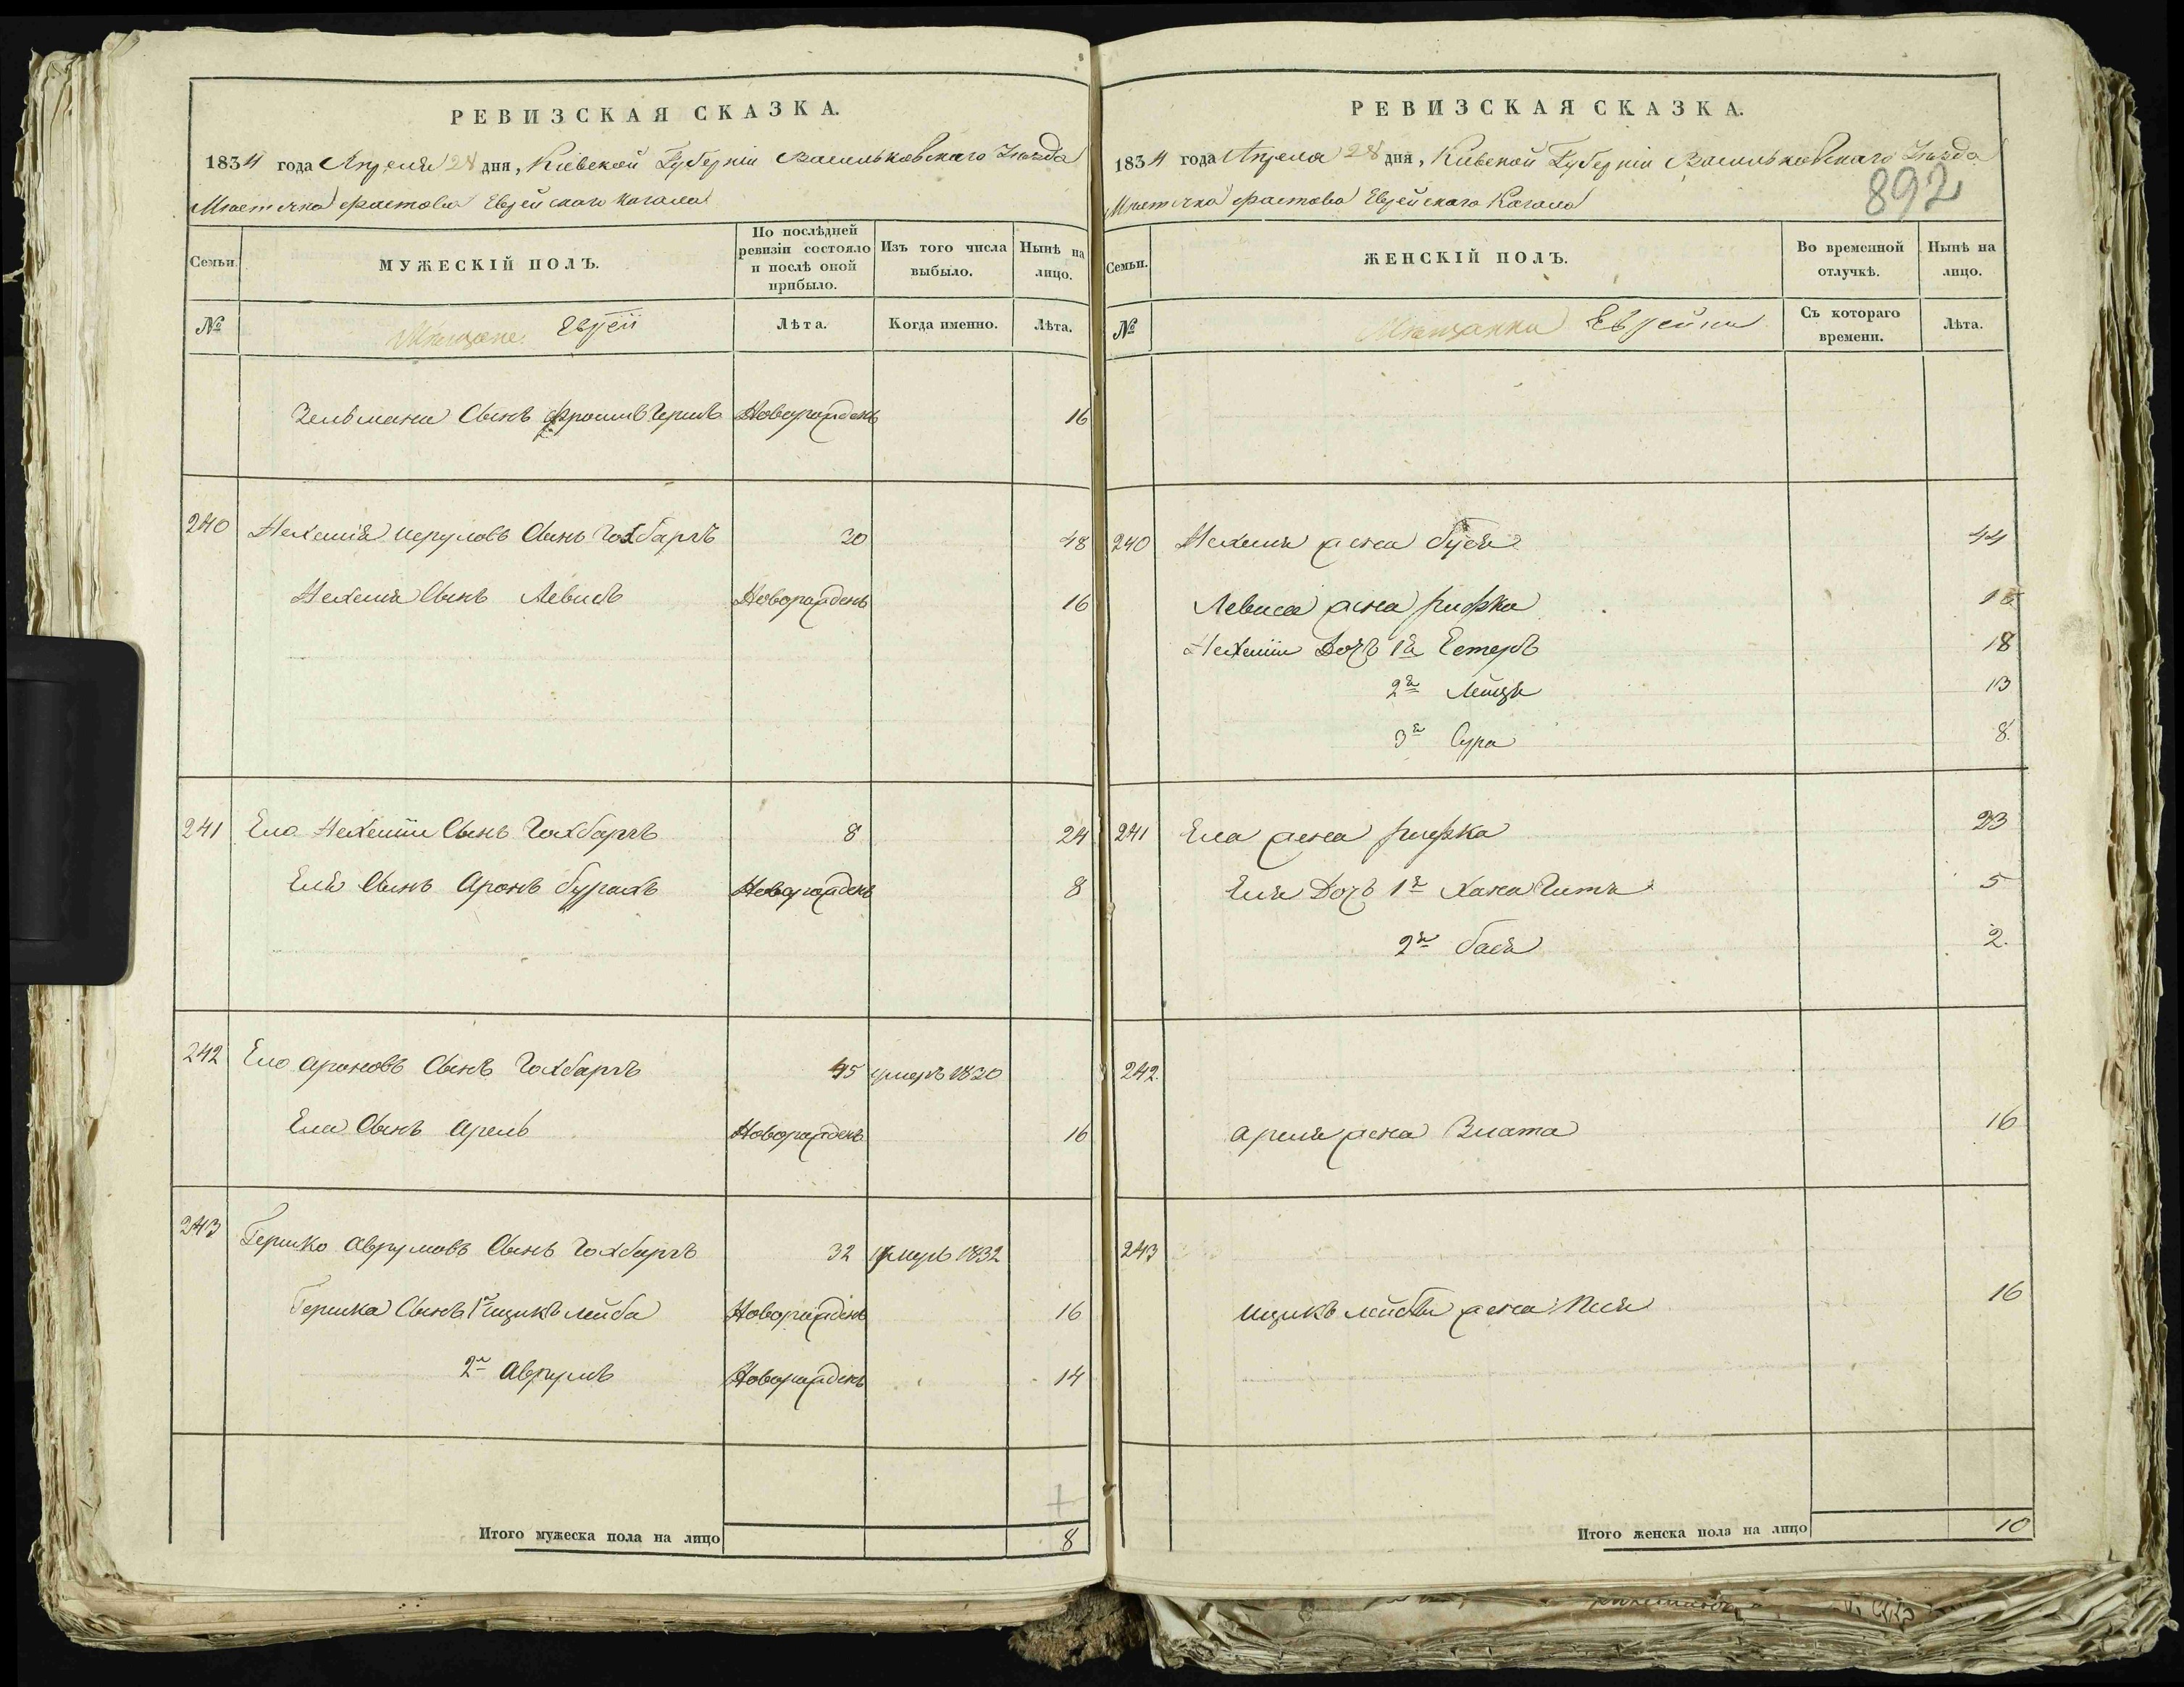 РЕВИЗСКАЯ СКАЗКА.
1834 года Апреля 28 дня, Кіевской Губерніи Васильковскаго Уѣзда
Мѣстечка Фастова Еврейскаго Кагала
Семьи.
МУЖЕСКІЙ ПОЛЪ.
По послѣдней ревизіи состояло и послѣ оной прибыло.
Изъ того числа выбыло.
Нынѣ на лицо.
№
Мѣщане Евреи
Лѣта.
Когда именно.
Лѣта.
Зельмана Сынъ Фроимъ Новорожденъ 16
240 Нехемія Сынъ Гохбаргъ 30 48
Нехеми Сынъ Левисъ Новорожденъ 16
241 Ело Нехеміи Сынъ Гохбаргъ 8 24
Еля Сынъ Аронъ бурахъ Новорожденъ 8
242 Ело Ароновъ Сынъ Гохбаргъ 45 умеръ 1820
Ела Сынъ Арель Новорожденъ 16
243 Гершко Аврумовъ Сынъ Гохбаргъ 32 умеръ 1832
Гершка Сынъ 1й ицикъ лейба Новорожденъ 16
2й Аврумъ Новорожденъ 14
Итого мужеска пола на лицо 8
РЕВИЗСКАЯ СКАЗКА.
1834 года Апреля 28 дня, Кіевской Губерніи Васильковскаго Уѣзда
892
Мѣстечка Фастова Еврейскаго Кагала
Семьи.
ЖЕНСКІЙ ПОЛЪ.
Во временной отлучкѣ.
Нынѣ на лицо.
№
Мѣщанки Еврейки
Съ котораго времени.
Лѣта.
240 Нехеми жена 44
Левиса жена рифка
Нехеміи Дочь 1я Естеръ 18
2я 13
3я Сура 8.
241 Ела жена рифка 23
Еля Дочь 1я Хана Гитя 5
2я бася 2.
242.
Ареля жена Злата 16
243
ицикъ лейбы жена 16
Итого женска пола на лицо 10